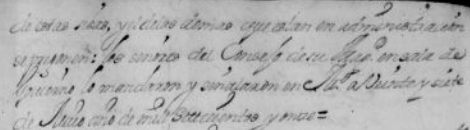 de estas sisas, y de las demas que estan en administracion
se pusieron: los señores del Consejo de su Mag.d en sala de
Govierno lo mandaron y señalaron en M.d a Veinte y siete
de año de mill Settecientos y onze=